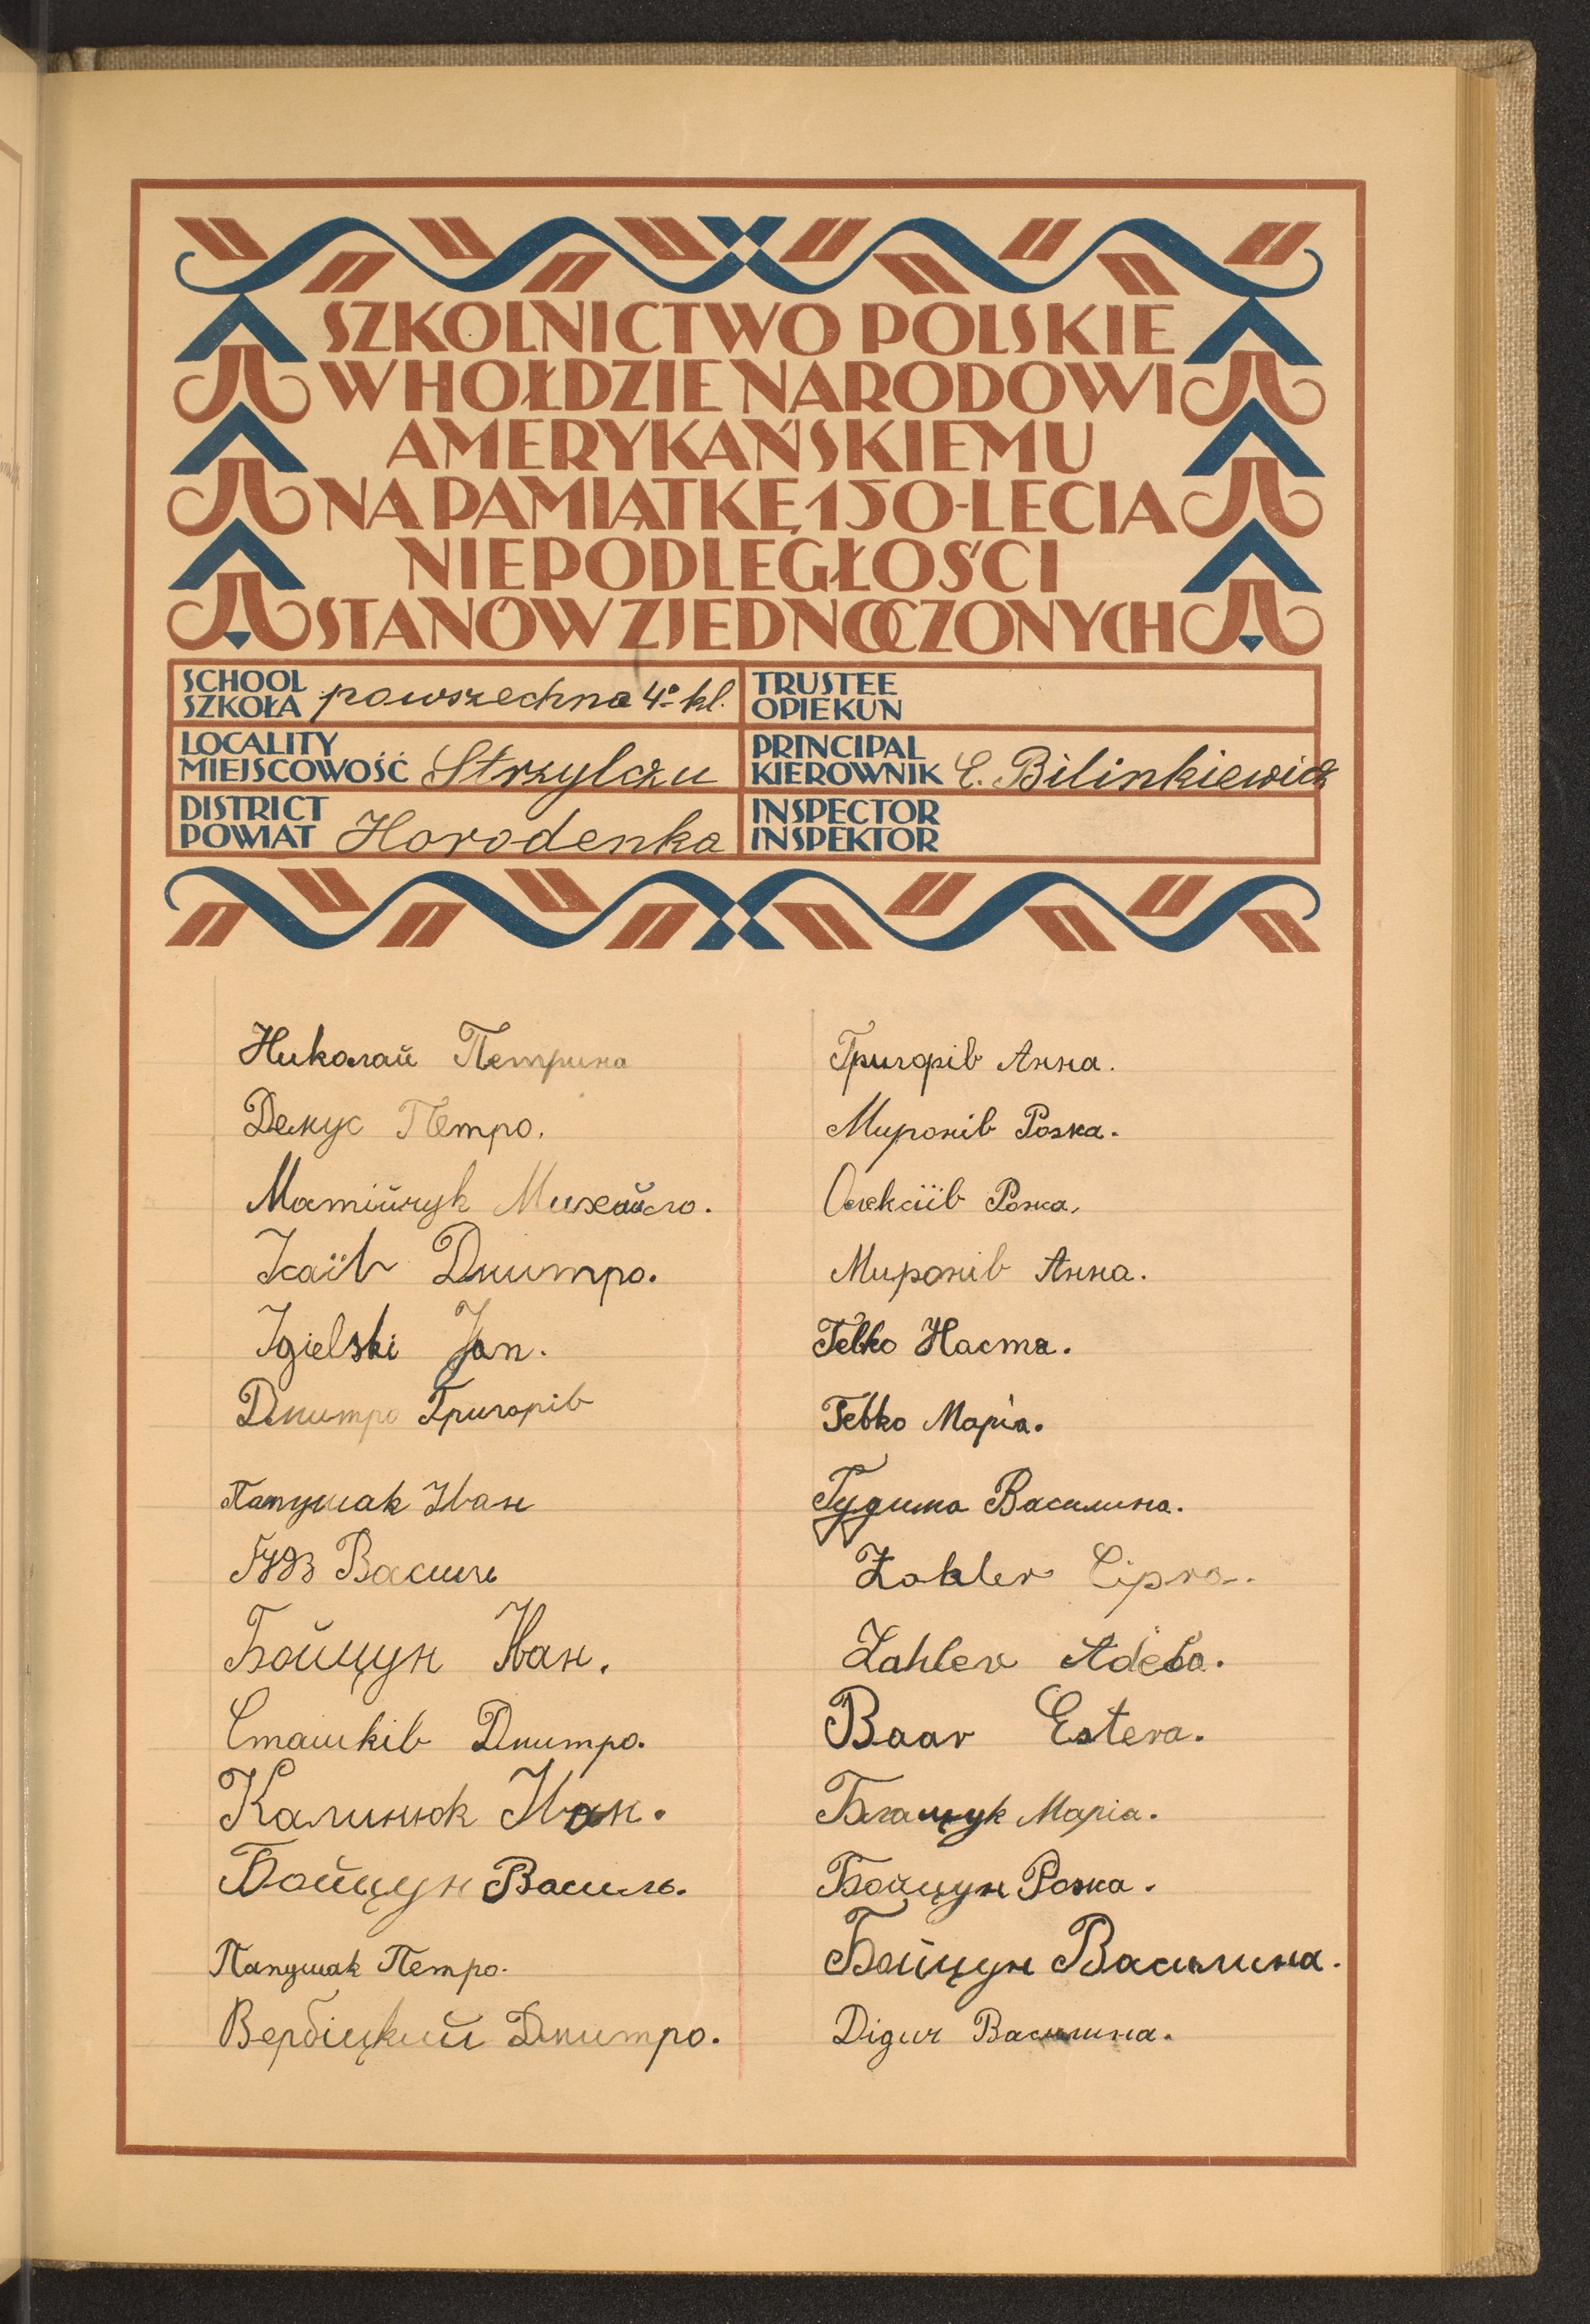 SZKOLNICTWO POLSKIE
W HOŁDZIE NARODOWI
AMERYKAŃSKIEMU
NA PAMIĄTKĘ 150-LECIA
NIEPODLEGŁOŚCI
STANÓW ZJEDNOCZONYCH
SCHOOL
SZKOŁA powszechna 4º kl.
TRUSTEE
OPIEKUN
LOCALITY
MIEJSCOWOŚĆ Strzylczu
PRINCIPAL
KIEROWNIK E. Bilinkiewicz
DISTRICT
POWIAT Horodenka
INSPECTOR
INSPEKTOR
Николай Петрина
Демус Петро.
Матійчук Михайло.
Ісаїв Дмитро.
Igielski Jan.
Дмитро Григорів
Папушак Іван
Ґудз Василь
Бойцун Іван.
Сташків Дмитро.
Калинюк Іван.
Бойцун Василь.
Папушак Петро.
Вербіцкий Дмитро.
Григорів Анна.
Миронів Розка.
Олексіїв Рожа.
Миронів Анна.
Гевко Наста.
Гевко Марія.
Гудима Василина.
Zahler Cipra.
Zahler Adela.
Baar Estera.
Блащук Марія.
Бойцун Рожа.
Бойцун Василина.
Дідич Василина.